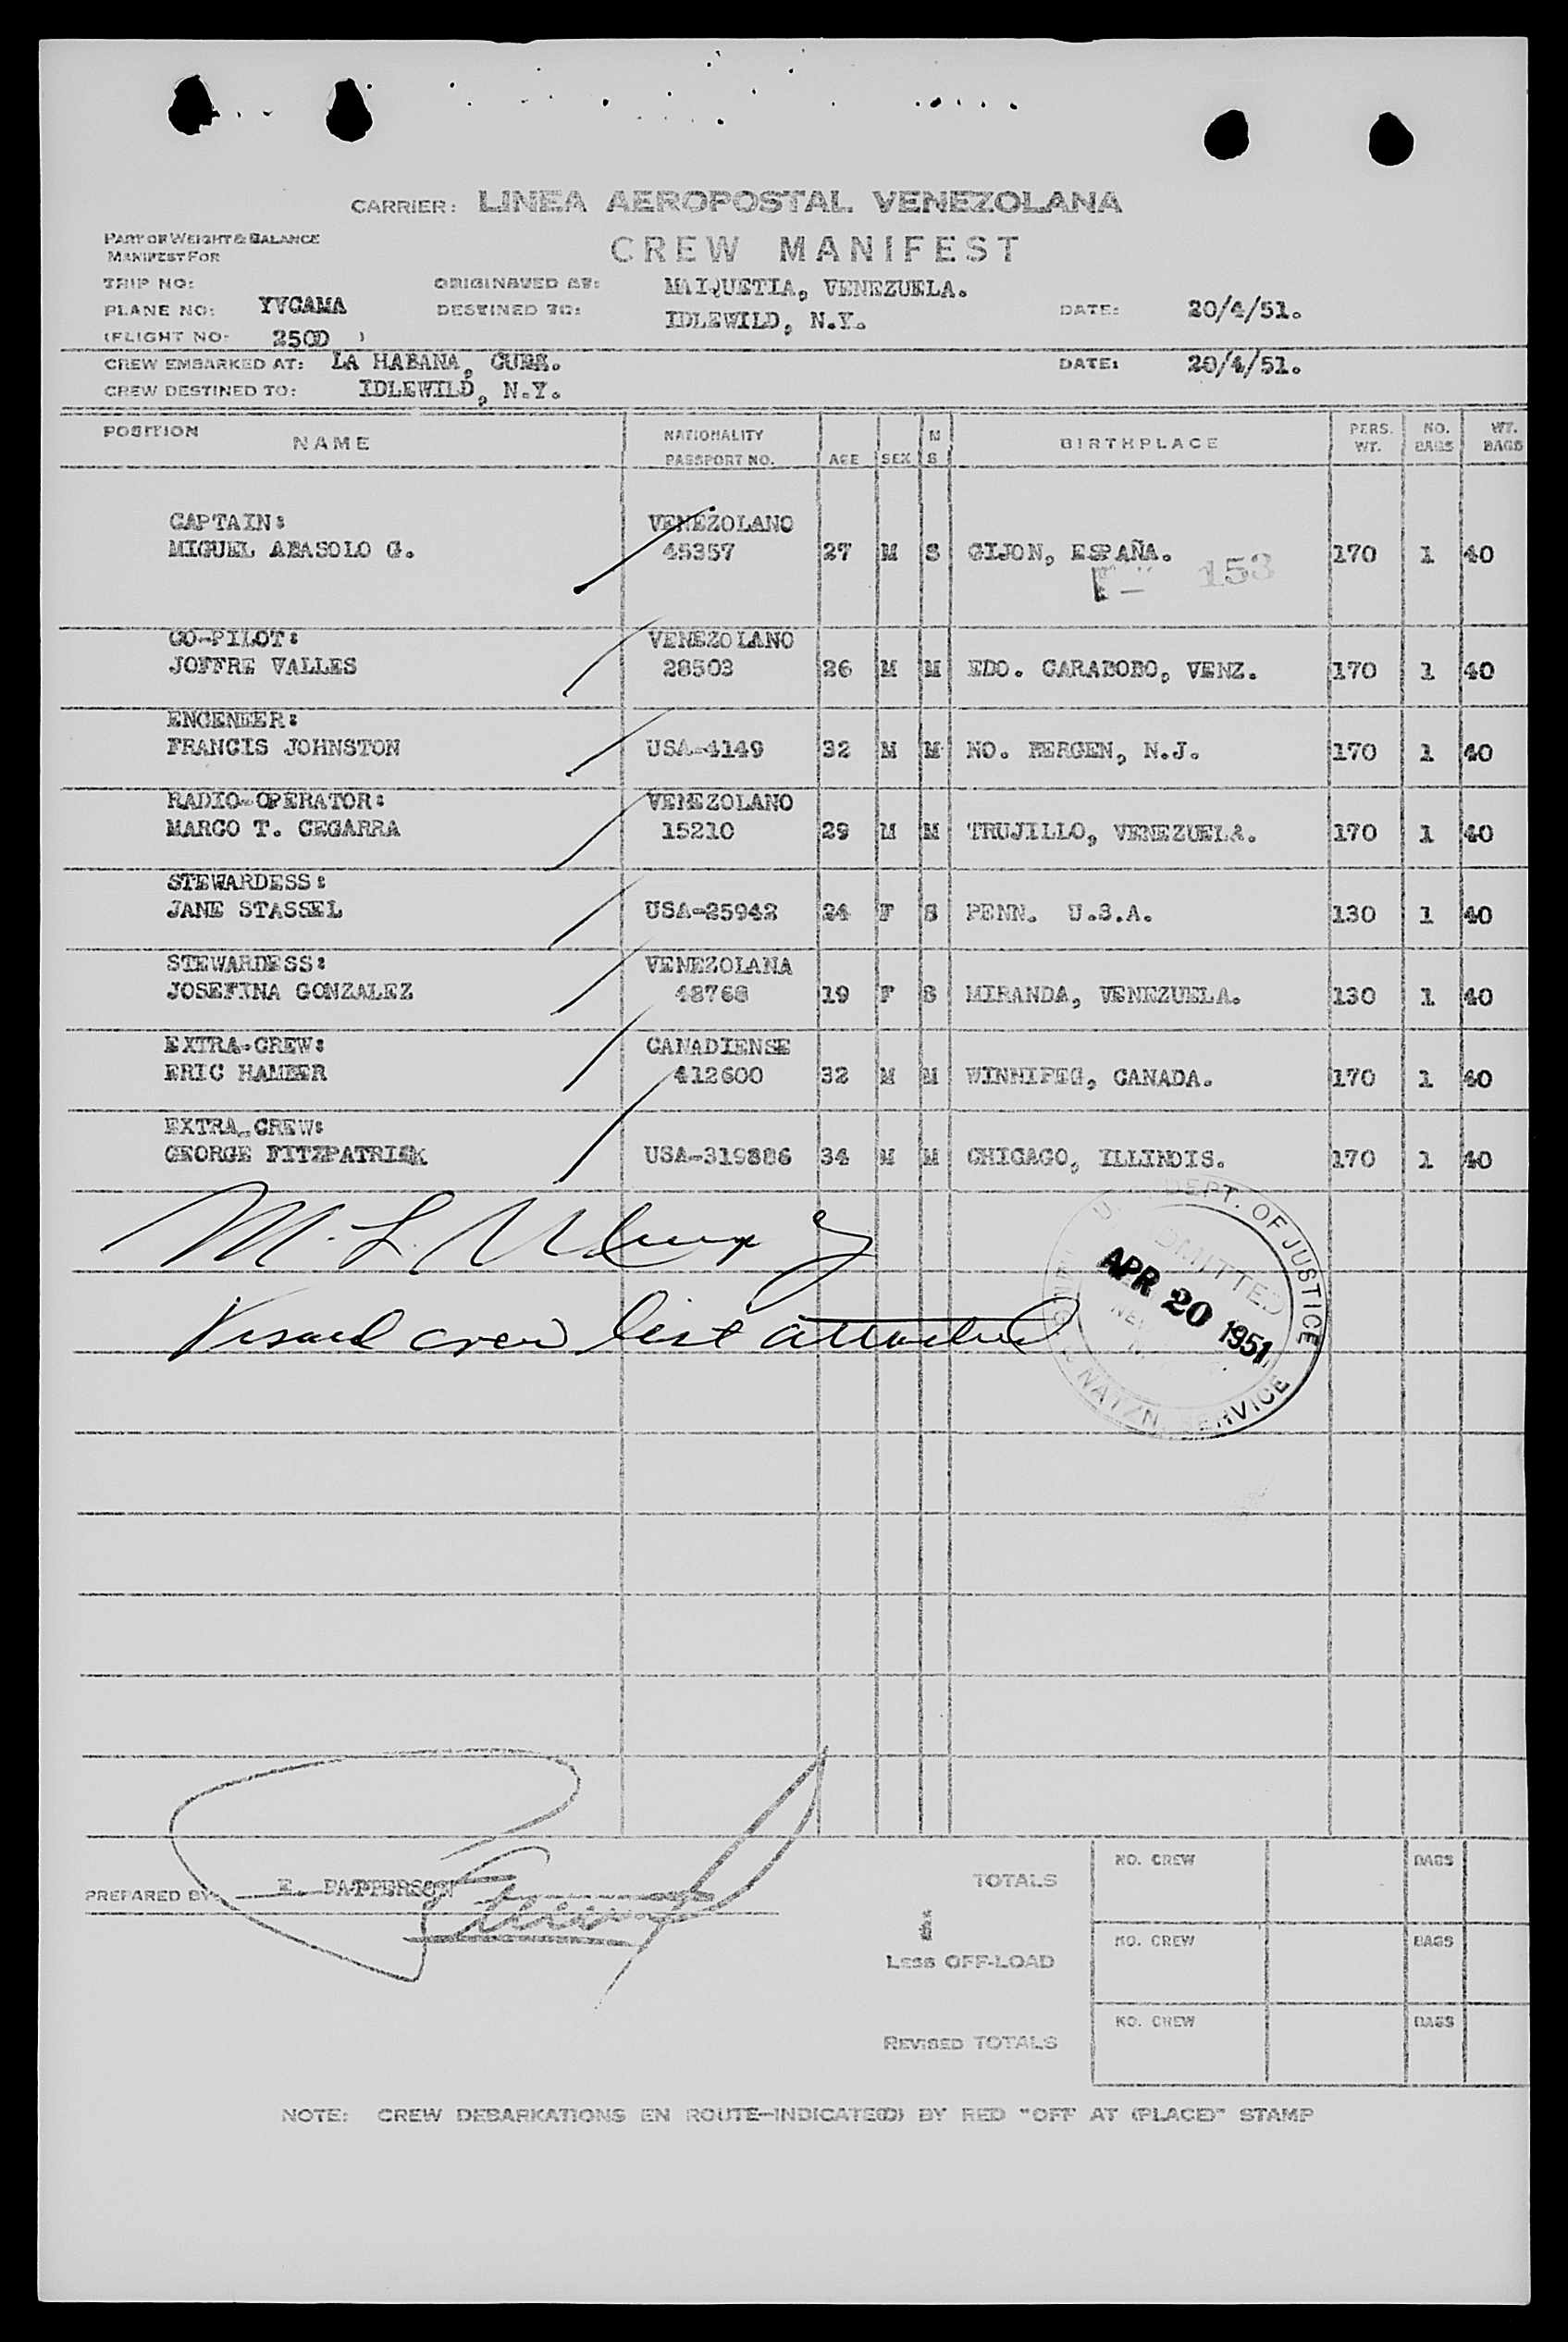 CARRIER: LINEA AEROPOSTAL VENEZOLANA
PART OF WEIGHT & BALANCE
MANIFEST FOR
CREW MANIFEST
TRIP NO: ORIGINATED AT: MAIQUETIA, VENEZUELA.
PLANE NO: YVCAMA DESTINED TO: IDLEWILD, N.Y. DATE: 20/4/51.
(FLIGHT NO: )
CREW EMBARKED AT: LA HABANA, CUBA. DATE: 20/4/51.
CREW DESTINED TO: IDLEWILD, N.Y.
POSITION NAME NATIONALITY PASSPORT NO. AGE SEX M S BIRTHPLACE PERS. WT. NO. BAGS WT. BAGS
CAPTAIN: VENEZOLANO
MIGUEL ABASOLO G. 45357 27 M S GIJON, ESPAÑA. 170 1 40
153
CO-PILOT: VENEZOLANO
JOFFRE VALLES 28503 26 M M EDO. CARABOBO, VENZ. 170 1 40
ENGENEER:
FRANCIS JOHNSTON USA-4149 32 M M NO. BERGEN, N.J. 170 1 40
RADIO-OPERATOR: VENEZOLANO
MARCO T. CEGARRA 15210 29 M M TRUJILLO, VENEZUELA. 170 1 40
STEWARDESS:
JANE STASSEL USA-25942 24 F S PENN. U.S.A. 130 1 40
STEWARDESS: VENEZOLANA
JOSEFINA GONZALEZ 48768 19 F S MIRANDA, VENEZUELA. 130 1 40
EXTRA-CREW: CANADIENSE
ERIC HAMBER 412600 32 M M WINNIPEG, CANADA. 170 1 40
EXTRA-CREW:
GEORGE FITZPATRICK USA-319886 34 M M CHICAGO, ILLINOIS. 170 1 40
M. L.
Visaed crew list attached
DEPT. OF JUSTICE
ADMITTED
APR 20 1951
NATZN. SERVICE
PREPARED BY: E. PATTERSON
TOTALS NO. CREW BAGS
LESS OFF-LOAD NO. CREW BAGS
REVISED TOTALS NO. CREW BAGS
NOTE: CREW DEBARKATIONS EN ROUTE-INDICATE(D) BY RED "OFF AT (PLACE)" STAMP